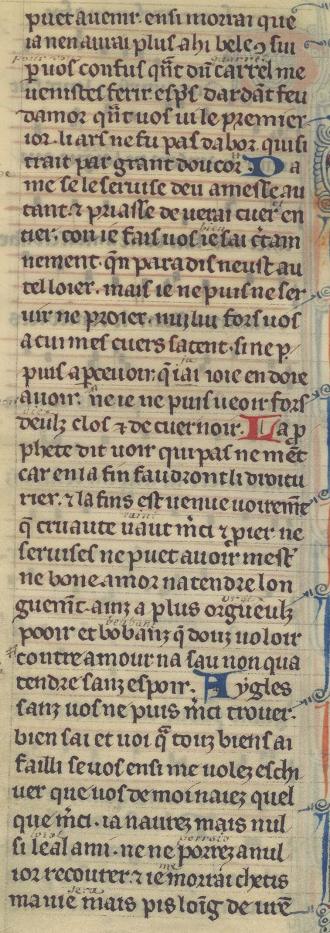 puet auenir. ensi morrai que
ia nen aurai plus ahi bele ꝯ sui
ꝑ uos confus qñt dũ carrel me
uenistes ferir espˀs dardãt feu
damor qñt uos ui le premier
ior. li ars ne fu pas dabor. qui si
trait par grant doucor. Da
me se le seruise deu amasse au
tant. ⁊ priasse de uerai cuer en
tier. con ie fais uos ie sai c̾tain
nement. qͥn paradis neust au
tel loier. mais ie ne puis ne ser
uir ne proier. nului fors uos
a cui mes cuers satent. si ne ꝑ
puis aꝑceuoir. q̃ iai ioie en doie
auoir. ne ie ne puis ueoir fors
deulz clos ⁊ de cuer noir. La ꝓ
phete dit uoir qui pas ne mẽt
car en la fin faudront li droitu
rier. ⁊ la fins est uenue uoiremẽt
q̃ cruaute uaut m̃ci ⁊ p̾ier. ne
seruises ne puet auoir mest̾
ne bone amor natendre lon
guemẽt. ainz a plus orgueulz
pooir et bobanz q̃ douz uoloir
contre amour na sau non qua
tendre sanz espoir. Aygles
sanz uos ne puis m̃ci trouer.
bien sai et uoi qͣ touz biens ai
failli se uos ensi me uolez eschi
uer que uos de moi naiez quel
que m̃ci. ia naurez mais nul
si leal ami. ne ne porrez a nul
ior recourer. ⁊ ie morrai chetis
ma uie mais pis loĩg de ur̃e